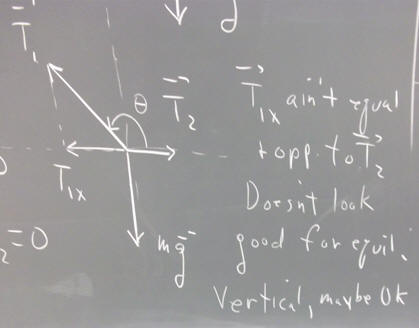 T₁
g
θ
T₂
T₁ₓ
mg
₂=0
T₁ₓ ain't equal
+ opp. to T₂
Doesn't look
good for equil.
Vertical, maybe OK